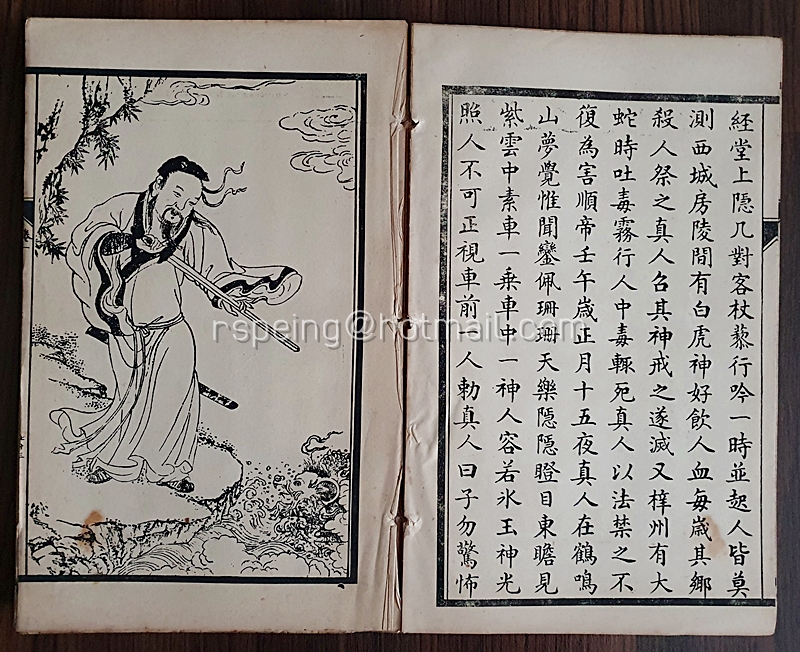 經堂上隱几對客杖藜行吟一時並起人皆莫
測西城房陵間有白虎神好飲人血每歲其鄉
殺人祭之真人召其神戒之遂滅又梓州有大
蛇時吐毒霧行人中毒輒死真人以法禁之不
復為害順帝壬午歲正月十五夜真人在鶴鳴
山夢覺惟聞鑾佩珊珊天樂隱隱瞪目東瞻見
紫雲中素車一乘車中一神人容若氷玉神光
照人不可正視車前一人勅真人曰子勿驚怖
rspeing@hotmail.com